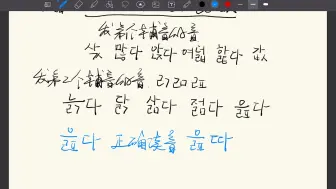 发第1个辅音的音
삯 많다 앉다 여덟 핥다 값
发第2个辅音的音 ㄺ ㄻ ㄿ
늙다 닭 삶다 젊다 읊다
읊다 正确读音 읊따